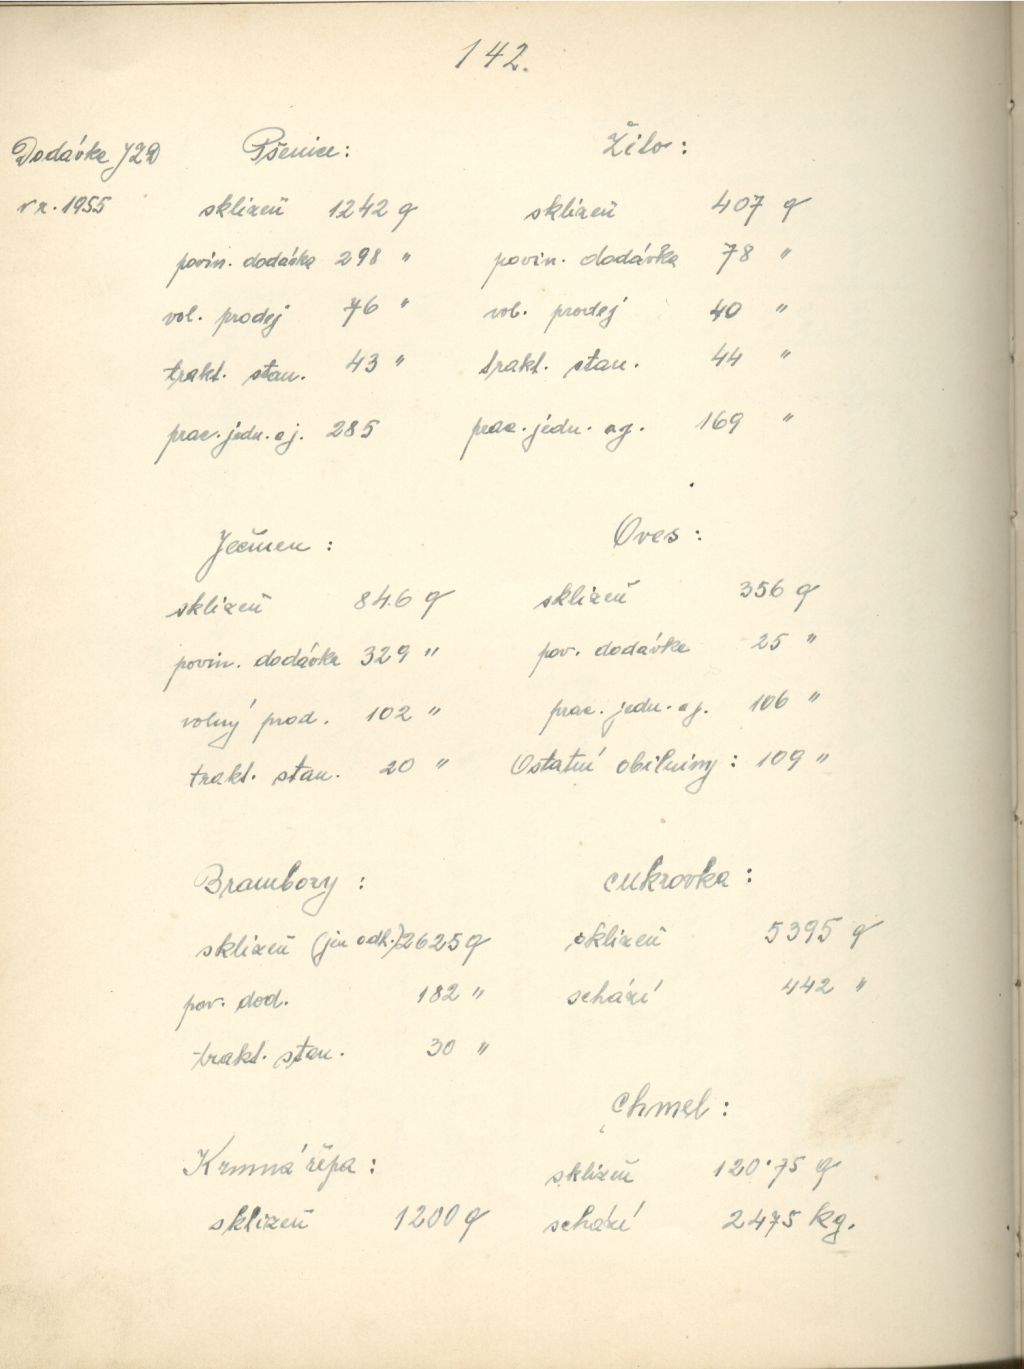 142.
Dodávka JZD
v r. 1955
Pšenice:
sklizeň 1242 q
povin. dodávka 298 "
vol. prodej 76 "
trakt. stan. 43 "
prac. jedn. a j. 285
Žito:
sklizeň 407 q
povin. dodávka 78 "
vol. prodej 40 "
trakt. stan. 44 "
prac. jedn. a j. 169 "
Ječmen:
sklizeň 846 q
povin. dodávka 329 "
volný prod. 102 "
trakt. stan. 20 "
Oves:
sklizeň 356 q
pov. dodávka 25 "
prac. jedn. a j. 106 "
Ostatní obilniny: 109 "
Brambory:
sklizeň (jen odh.) 2625 q
pov. dod. 182 "
trakt. stan. 30 "
cukrovka:
sklizeň 5395 q
schází 442 "
Krmná řepa:
sklizeň 1200 q
Chmel:
sklizeň 120·75 q
schází 2475 kg.